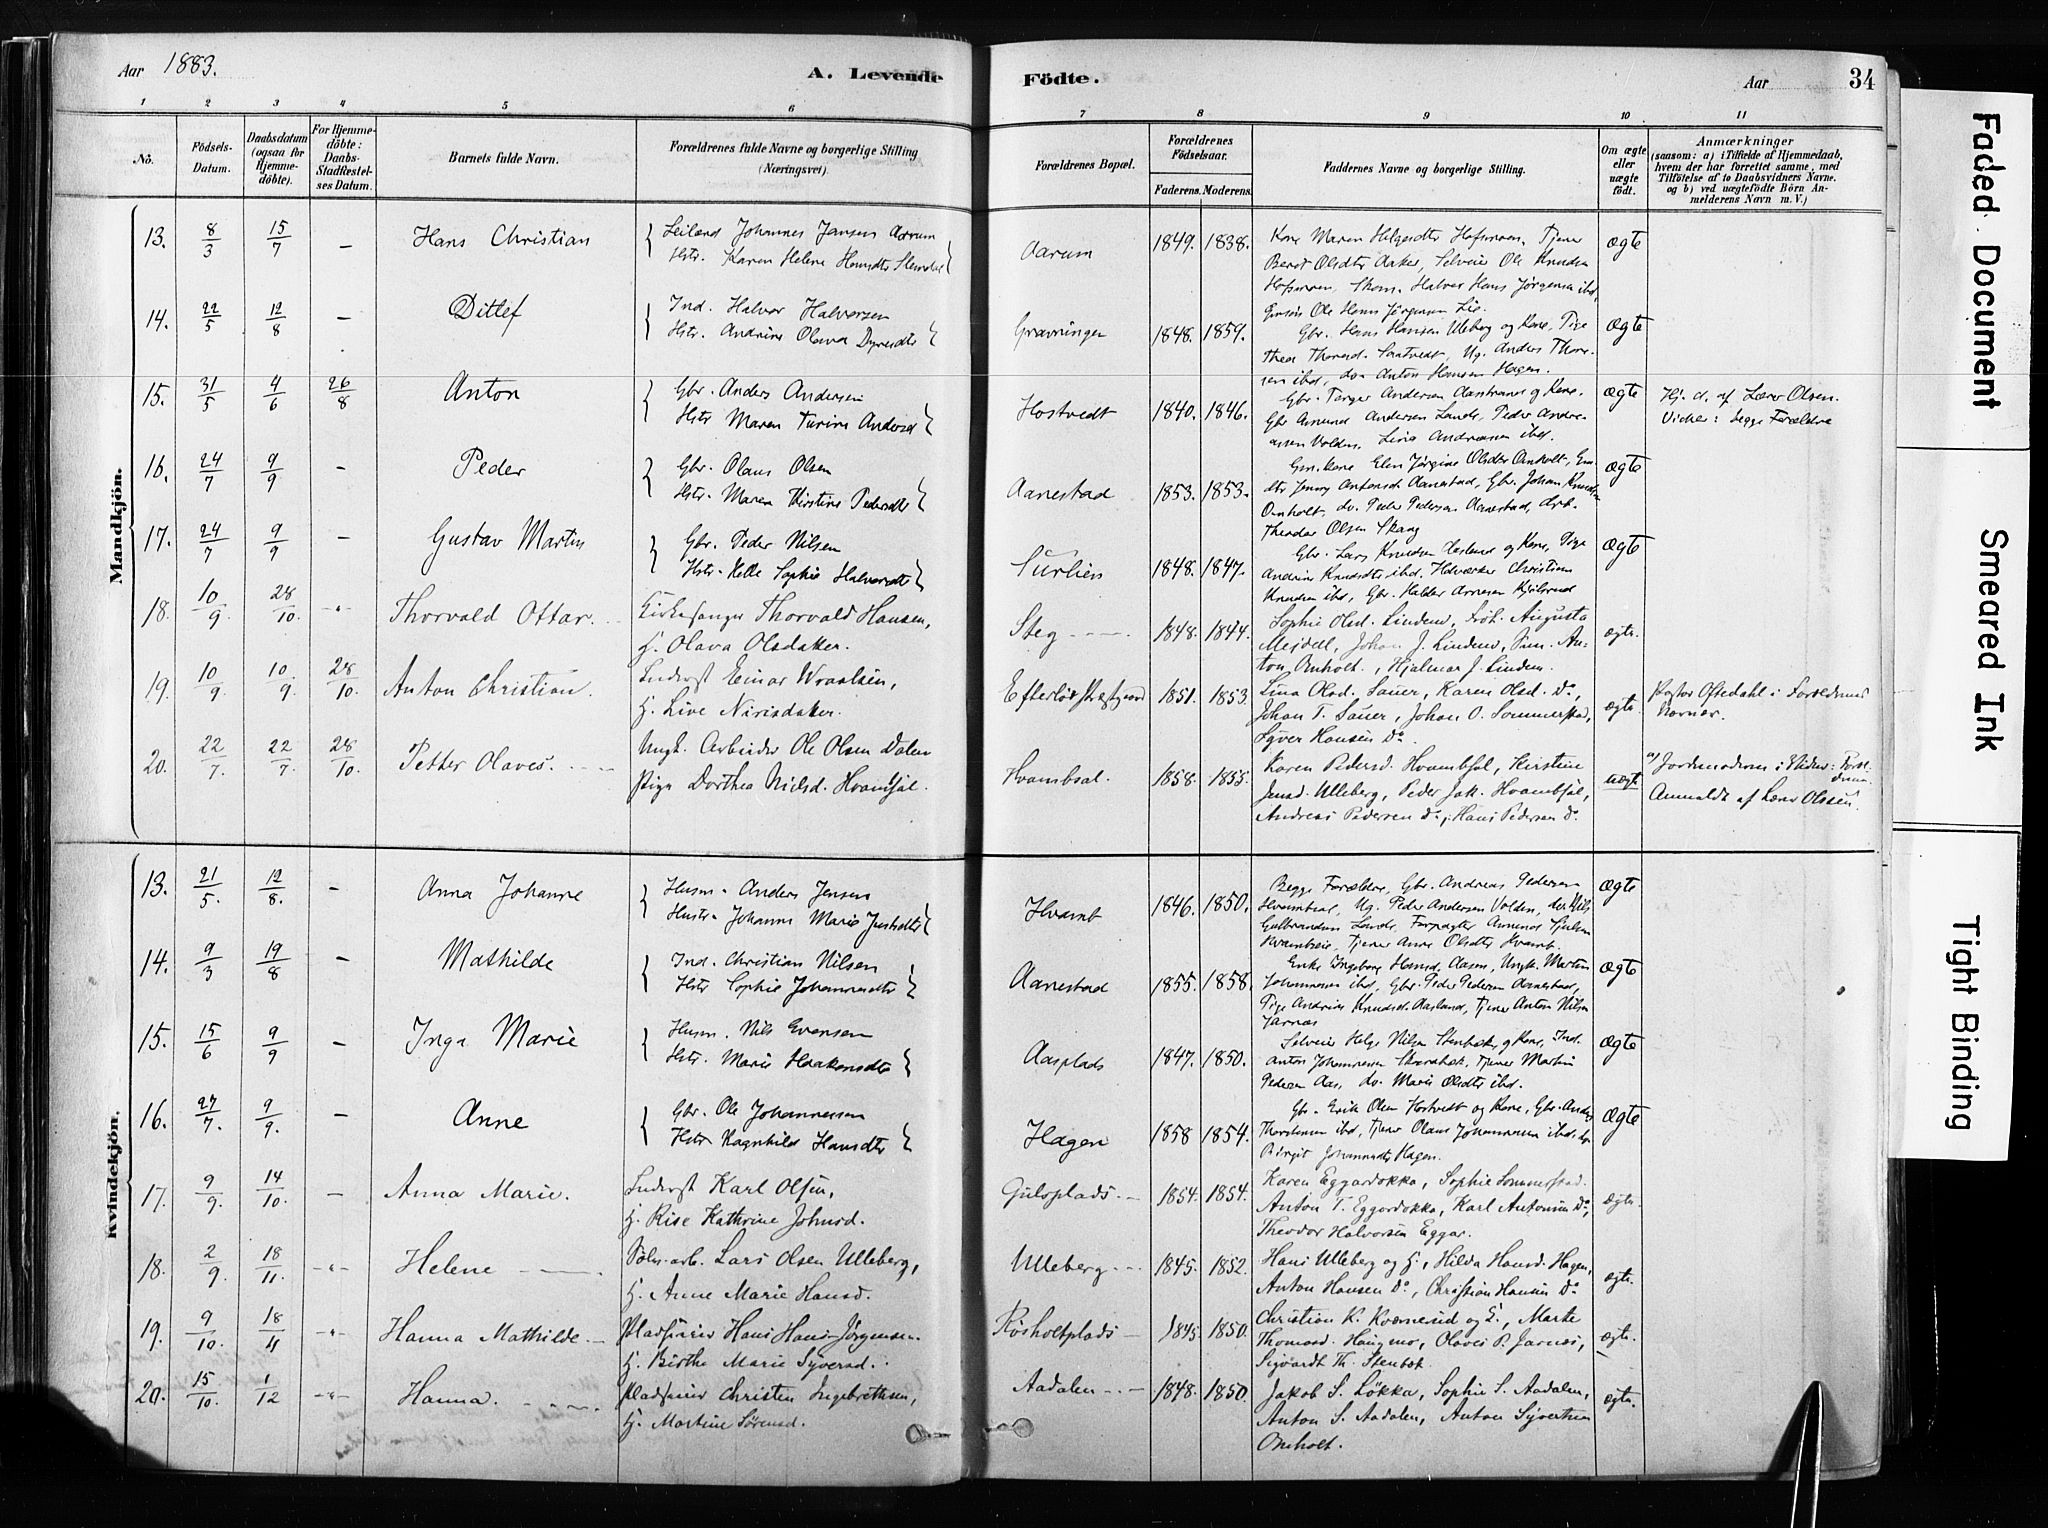 Aar 1883.
A. Levende Födte.
Aar
34
1 2 3 4 5 6 7 8 9 10 11
No.
Födsels-
Datum.
Daabsdatum
(ogsaa for
Hjemme-
döbte).
For Hjemme-
döbte:
Daabs-
Stadfæstel-
ses Datum.
Barnets fulde Navn.
Forældrenes fulde Navne og borgerlige Stilling
(Næringsvei).
Forældrenes Bopæl.
Forældrenes
Födselsaar.
Faderens. Moderens.
Faddernes Navne og borgerlige Stilling.
Om ægte
eller
uægte
födt.
Anmærkninger
(saasom: a) i Tilfælde af Hjemmedaab,
hvem der har forrettet samme, med
Tilföielse af to Daabsvidners Navne.
og b) ved uægtefödte Börn An-
melderens Navn m. V.)
Mandkjön.
13. 8/3 15/7 - Hans Christian
Leilænd Johannes Jansen Aarum
Hstr. Karen Helene
Aarum 1849. 1838.
Kone Maren Helgesdtr Hofsmoen, Tjener
Berot Olsdtr Aaker, Selveier Ole Knudsen
Hofsmoen, Skom. Halvor Hans Jørgensen ibd,
Ole Hans Jørgensen Lie.
ægte
14. 22/5 12/8 - Ditlef
Ind. Halvor Halvorsen
Hstr. Andrine Olava
Gravningen 1848. 1859.
Gbr. Hans Hansen Ulleberg og Kone, Pige
Thea Thorsd. Saatvedt, Ug. Anders Thor-
sen ibd, do Anton Hansen Hagen.
ægte
15. 31/5 4/6 26/8 Anton
Gbr. Anders Andersen
Hstr Maren Turine Andersd
Hostvedt 1840. 1846.
Gbr. Torger Andersen Aasstranen og Kone,
Gbr Amund Andersen Lande, Peder Andre-
assen Volden, Lina Andreasen ibd.
ægte
Hj. d. af Lærer Olsen.
Vidner: begge Forældre
16. 24/7 9/9 - Peder
Gbr. Olaus Olsen
Hstr. Maren Kirstine Pedersdtr
Aanestad 1853. 1853.
Gm.kone Elen Jørgine Olsdtr Omholt, Em.
dtr Jenny Antonsd. Aanestad, Gbr. Johan Knudsen
Omholt, do. Peder Pedersen Aanestad, Arb.
Theodor Olsen Skaug
ægte
17. 24/7 9/9 - Gustav Martin
Gbr. Peder Nilsen
Hstr. Helle Sophie Halvorsdtr
Surlien 1848. 1847.
Gbr. Lars Knudsen Hasland og Kone, Pige
Andrine Knudsdtr ibd, Haandværker Christian
Knudsen ibd, Gbr. Halder Arnesen
ægte
18. 10/9 28/10 -"- Thorvald Ottar.
Kirkesanger Thorvald Hansen,
H. Olava Olsdaker.
Steg 1848. 1844.
Sophie Olsd. Linden, Frøk. Augusta
Mejdell, Johan J. Linden, Sem. An-
ton Omholt., Hjalmar J. Linden.
ægte.
19. 10/9. 10/9. 28/10. Anton Christian.
Inderst Einar Wraalsen,
H. Live Nirisdaker.
Efterløs Prestgaard 1851. 1853.
Lina Olsd. Sauer, Karen Olsd. Do,
Johan T. Sauer, Johan O. Sommerstad,
Syver Hansen Do
ægte.
Pastor Oftedahl i Forældrenes
Nærvær.
20. 22/7. 22/7. 28/10. Petter Olaves.
Ungk. Arbeider Ole Olsen Dalen
Pige Dorthea Nielsd. Hvamsal.
Hvambsal. 1858. 1855.
Karen Pedersd. Hvambsal, Kirstine
Jensd. Ulleberg, Peder Jak. Hvambsal,
Andreas Pedersen Do, Hans Pedersen Do.
uægte
a) Jordemoderen i
Anmeldt af Lærer Olssen.
Kvindekjön.
13. 21/5. 12/8. - Anna Johanne
Husm. Anders Jensen
Hustr. Johanne Marie
Hvamb 1846. 1850.
Begge Forældre, Gbr. Andreas Pedersen
Hvambsal, Ug. Peder Andersen Volden, do Nils
Gulbrandsen Lande, Forpagter Amund
Kvambseie, Tjener Anne Olsdtr Kvamb.
ægte
14. 9/3 19/8 - Mathilde
Ind. Christian Nilsen
Hstr Sophie Johannesdtr
Aanestad 1855. 1858.
Enke Ingeborg Hansd. Aasen, Ungk. Martin
Johannesen ibd, Gbr. Peder Pedersen Aanestad,
Pige Andrine Knudsd. Aasland, Tjener Anton Nilsen
Jarnæs
ægte
15. 15/6 9/9 - Inga Marie
Husm. Nils Evensen
Hstr. Marie Haakensdtr
Aasplads 1847. 1850.
Selveier Helge Nilsen Stenbæk og Kone, Ind.
Anton Johannesen Skarabæk, Tjener Martin
Pedersen Aas, do. Marie Olsdtr ibd.
ægte
16. 27/7. 9/9. - Anne
Gbr. Ole Johannessen
Hstr Ragnhild Hansdtr
Hagen 1858 1854.
Gbr. Erik Olsen Hostvedt og Kone, Gbr. Anders
Thorstensen ibd, Tjener Olaus Johannesen ibd,
Birgit Johannesdtr Hagen.
ægte
17. 9/9. 14/10. - Anna Marie.
Inderst Karl Olsen,
H. Rise Kathrine Johnsd.
Guloplads. 1854. 1854.
Karen Eggardokka, Sophie Sommerstad.
Anton T. Eggardokka, Karl Antonsen Do,
Theodor Halvorsen Eggar.
ægte.
18. 2/9. 18/11. -"- Helene
Sølv.arb. Lars Olsen Ulleberg,
H. Anne Marie Hansd.
Ulleberg 1845. 1852.
Hans Ulleberg og H., Hilda Hansd. Hagen,
Anton Hansen Do, Christian Hansen Do
ægte.
19. 9/10. 18/11 -"- Hanna Mathilde
Pladseier Hans Hans-Jørgensen.
H. Birthe Marie Syversd.
Røsholtplads 1845. 1850.
Christian K. Kværnerud og H., Marte
Thomasd. Haugmo, Olaves P. Jarnæs,
Sigvardt Th. Stenbæk.
ægte.
20. 15/10. 1/12 -"- Hanna.
Pladseier Christen Ingebrethsen,
H. Martine Sørensd.
Aadalen 1848. 1850.
Jakob S. Løkka, Sophie S. Aadalen,
Anton S. Aadalen, Anton Syvertsen
Omholt.
ægte.
Faded Document
Smeared Ink
Tight Binding